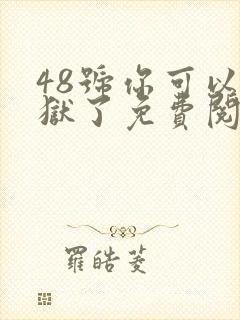 48號你可以
獄了免費閱
羅皓菱